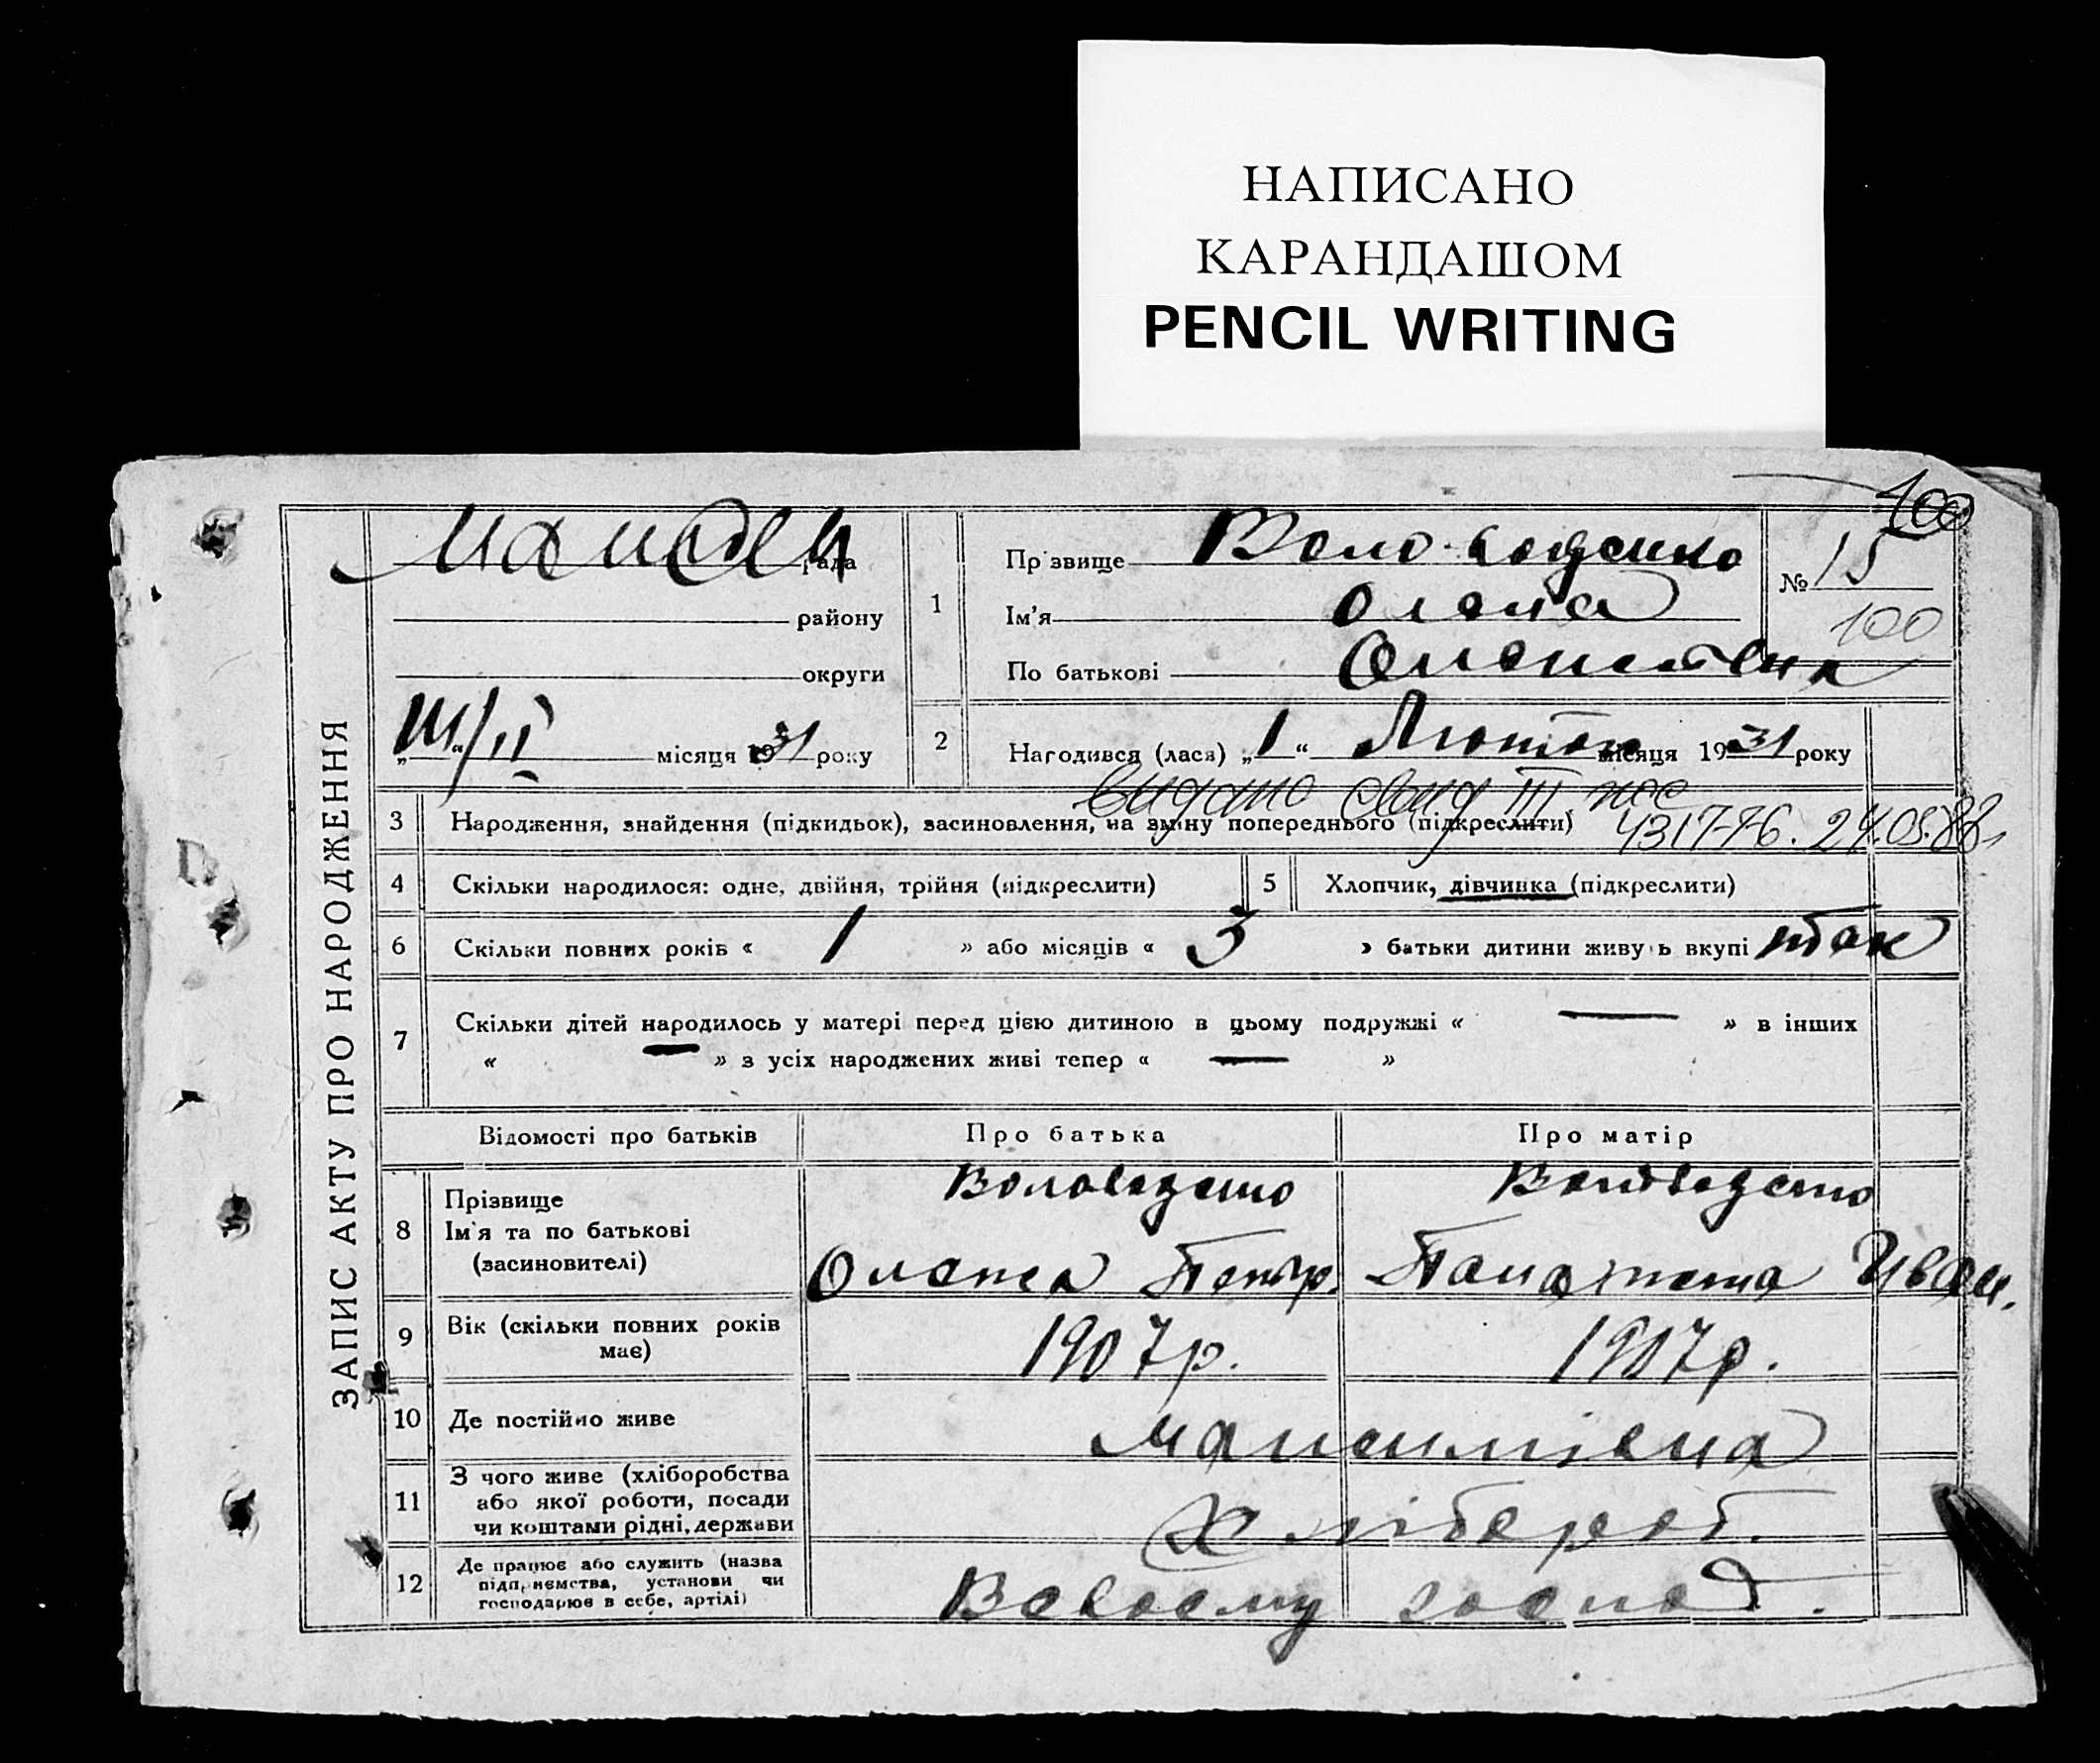 НАПИСАНО
КАРАНДАШОМ
PENCIL WRITING
100
ЗАПИС АКТУ ПРО НАРОДЖЕННЯ
рада
району
округи
III/II місяця 1931 року
1 Прізвище Воловоденко
Ім'я Олена
По батькові Олексіївна
№ 15
100
2 Народився (лася) „1“ Лютого місяця 1931 року
видано свид III
431776. 24.05.88
3 Народження, знайдення (підкидьок), засиновлення, на зміну попереднього (підкреслити)
4 Скільки народилося: одне, двійня, трійня (підкреслити)
5 Хлопчик, дівчинка (підкреслити)
6 Скільки повних років « 1 » або місяців « 3 » батьки дитини живуть вкупі так
7 Скільки дітей народилось у матері перед цією дитиною в цьому подружжі « — » в інших
« — » з усіх народжених живі тепер « — »
Відомості про батьків Про батька Про матір
8 Прізвище
Ім'я та по батькові
(засиновителі)
Воловоденко
Олекса Петр.
Воловоденко
Іван.
9 Вік (скільки повних років
має)
1907р. 1907р.
10 Де постійно живе Максимівка
11 З чого живе (хліборобства
або якої роботи, посади
чи коштами рідні, держави
Хлібороб.
12 Де працює або служить (назва
підприємства, установи чи
господарює в себе, артілі)
В своєму господ.